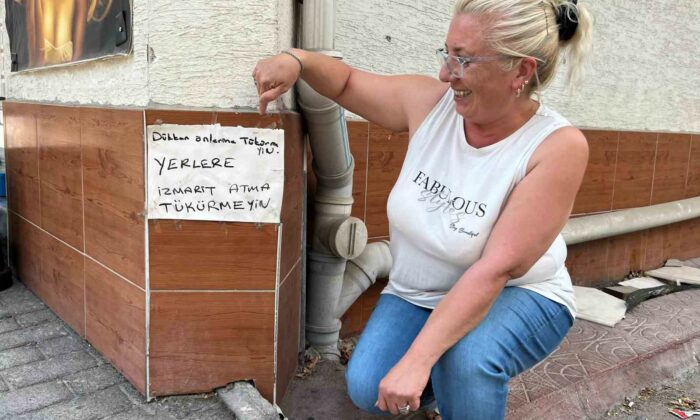 Dükkan önlerine Tükürme
YİN.
YERLERE
İZMARİT ATMA
TÜKÜRMEYİN
FABULOUS
styles